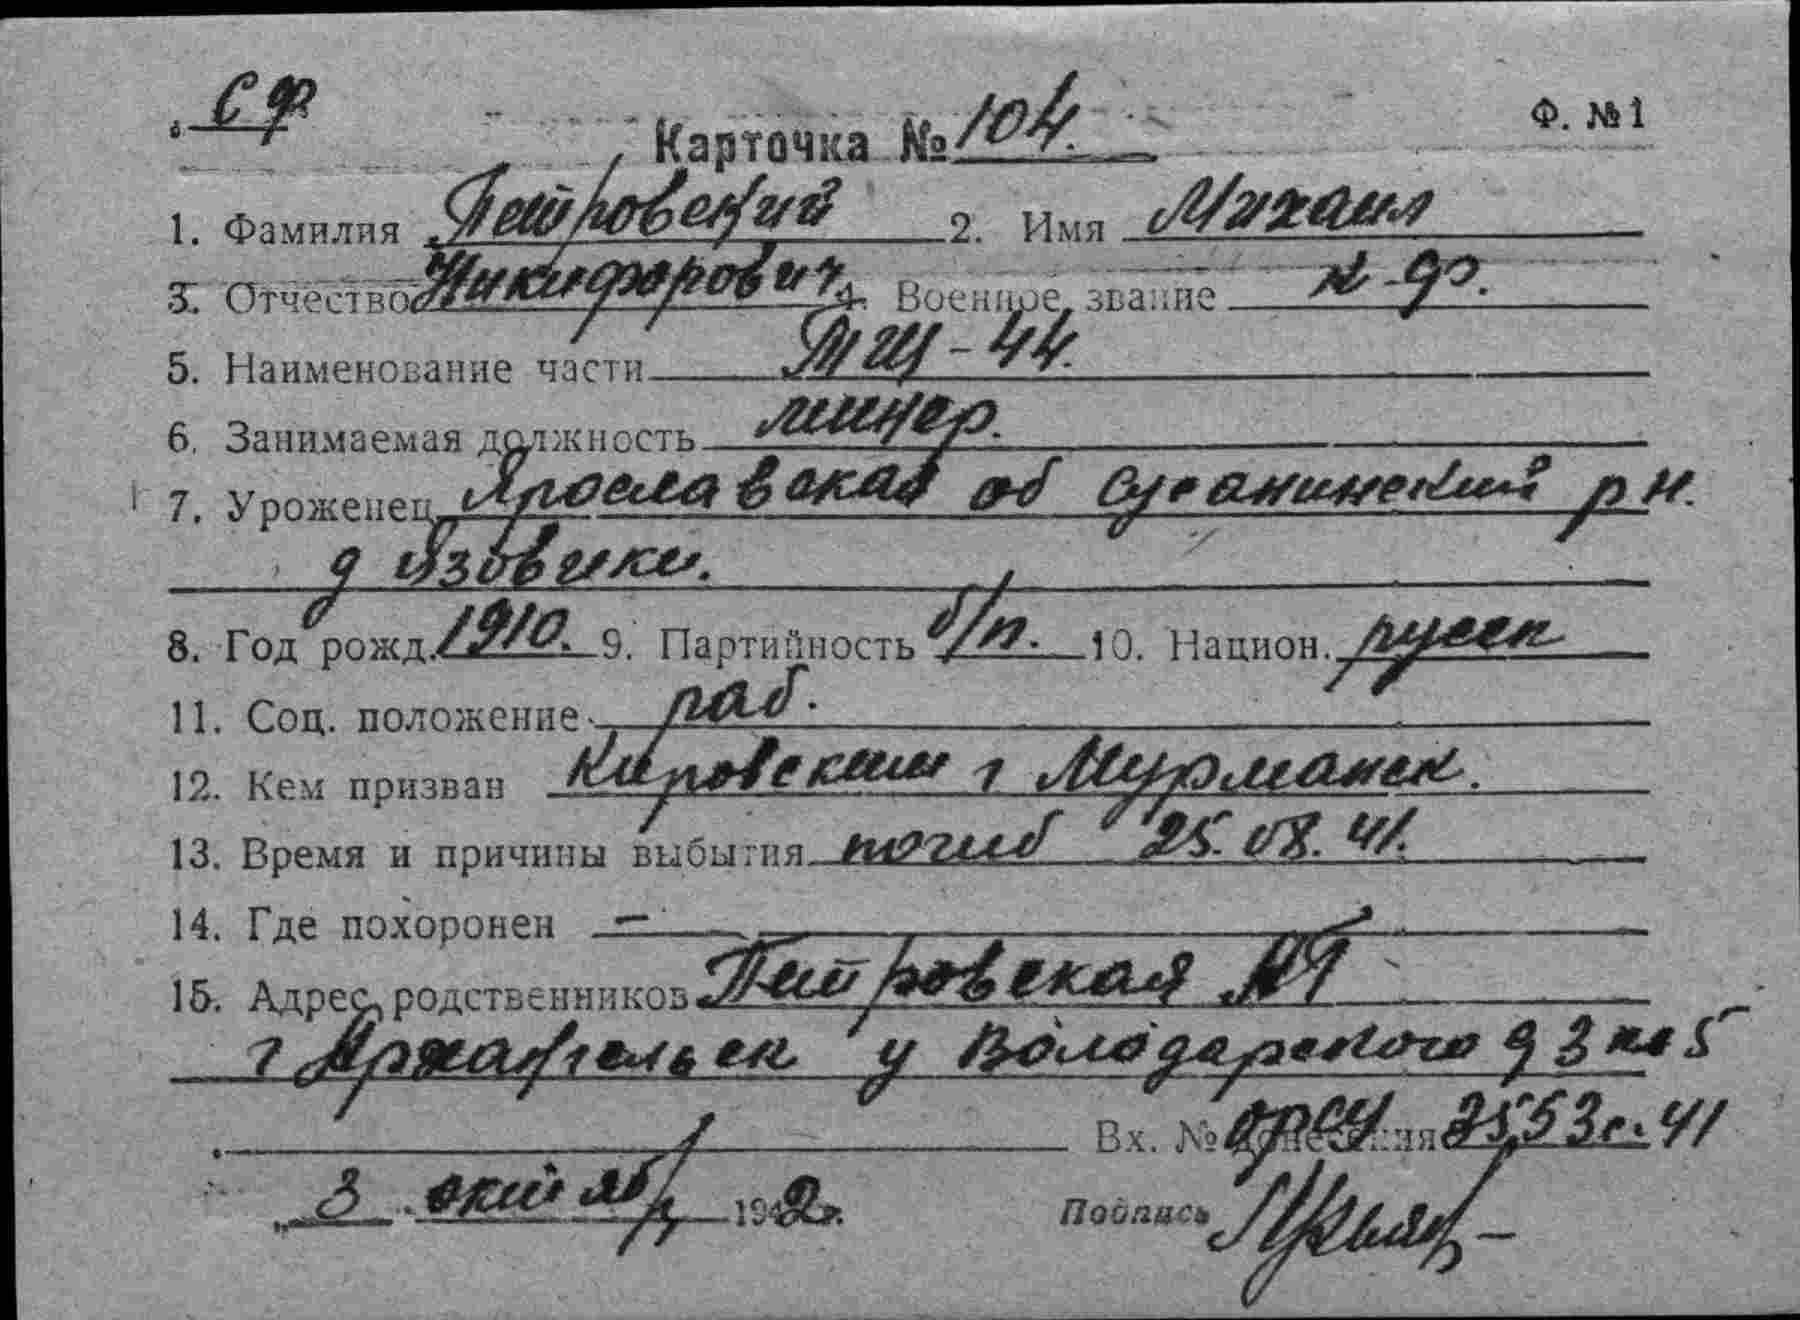 СФ
Карточка № 104.
Ф. №1
1. Фамилия Петровский 2. Имя Михаил
3. Отчество Никифорович 4. Военное звание к-ф.
5. Наименование части ТЩ-44.
6. Занимаемая должность минер.
7. Уроженец Ярославская об Сусанинский р н.
д Язовики.
8. Год рожд. 1910. 9. Партийность б/п. 10. Национ. русск
11. Соц. положение раб.
12. Кем призван Кировским г Мурманск.
13. Время и причины выбытия погиб 25.08.41.
14. Где похоронен —
15. Адрес родственников Петровская
г Архангельск у Володарского д 3 кв 5
Вх. № донесения 2553с. 41
„ 3 . октяб 1942г. Подпись